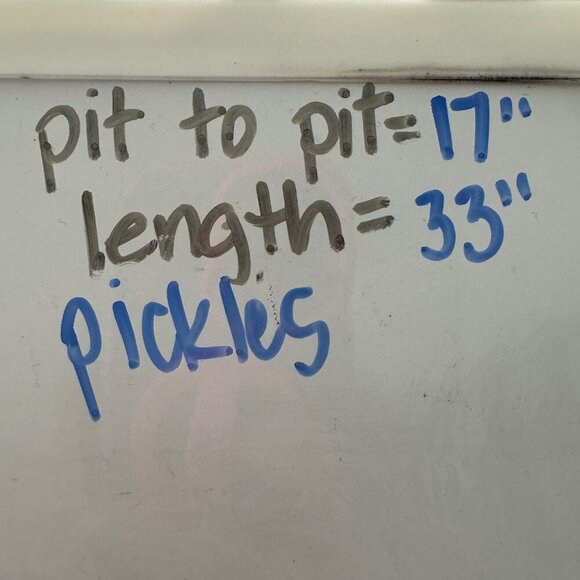 pit to pit=17"
length=33"
pickles